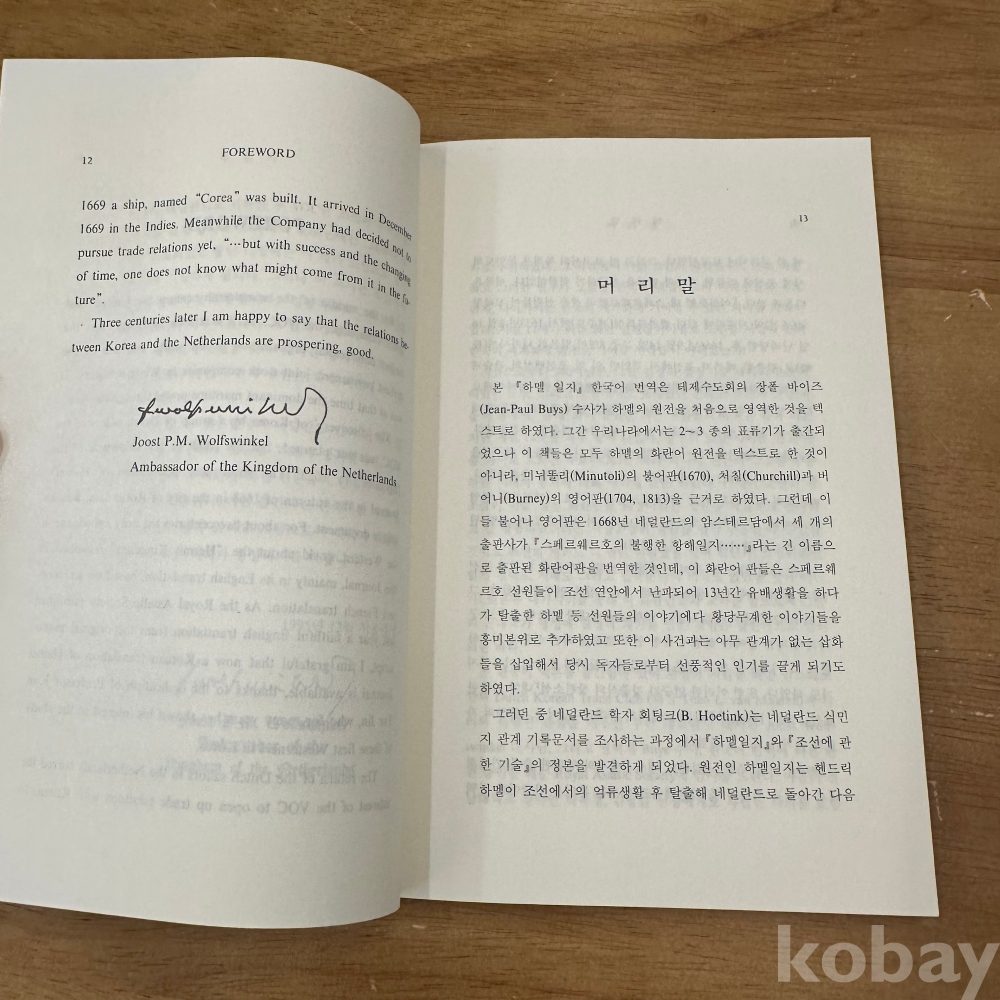 12
FOREWORD
1669 a ship, named “Corea” was built. It arrived in December
1669 in the Indies. Meanwhile the Company had decided not to
pursue trade relations yet, “…but with success and the changing
of time, one does not know what might come from it in the fu-
ture”.
Three centuries later I am happy to say that the relations be-
tween Korea and the Netherlands are prospering, good.
Joost P.M. Wolfswinkel
Ambassador of the Kingdom of the Netherlands
13
머 리 말
본 『하멜 일지』 한국어 번역은 테제수도회의 장폴 바이즈
(Jean-Paul Buys) 수사가 하멜의 원전을 처음으로 영역한 것을 텍
스트로 하였다. 그간 우리나라에서는 2~3 종의 표류기가 출간되
었으나 이 책들은 모두 하멜의 화란어 원전을 텍스트로 한 것이
아니라, 미뉘똘리(Minutoli)의 불어판(1670), 처칠(Churchill)과 버
어니(Burney)의 영어판(1704, 1813)을 근거로 하였다. 그런데 이
들 불어나 영어판은 1668년 네덜란드의 암스테르담에서 세 개의
출판사가 『스페르웨르호의 불행한 항해일지……』라는 긴 이름으
로 출판된 화란어판을 번역한 것인데, 이 화란어 판들은 스페르웨
르호 선원들이 조선 연안에서 난파되어 13년간 유배생활을 하다
가 탈출한 하멜 등 선원들의 이야기에다 황당무계한 이야기들을
흥미본위로 추가하였고 또한 이 사건과는 아무 관계가 없는 삽화
들을 삽입해서 당시 독자들로부터 선풍적인 인기를 끌게 되기도
하였다.
그러던 중 네덜란드 학자 회팅크(B. Hoetink)는 네덜란드 식민
지 관계 기록문서를 조사하는 과정에서 『하멜일지』와 『조선에 관
한 기술』의 정본을 발견하게 되었다. 원전인 하멜일지는 헨드릭
하멜이 조선에서의 억류생활 후 탈출해 네덜란드로 돌아간 다음
kobay